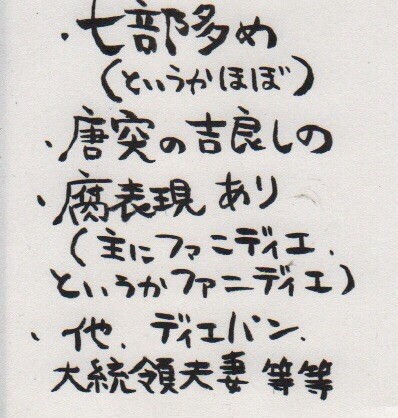 ・七部多め
(というかほぼ)
・唐突の吉良しの
・腐表現あり
(主にファニディエ、
というかファニディエ)
・他、ディエバン、
大統領夫妻等等